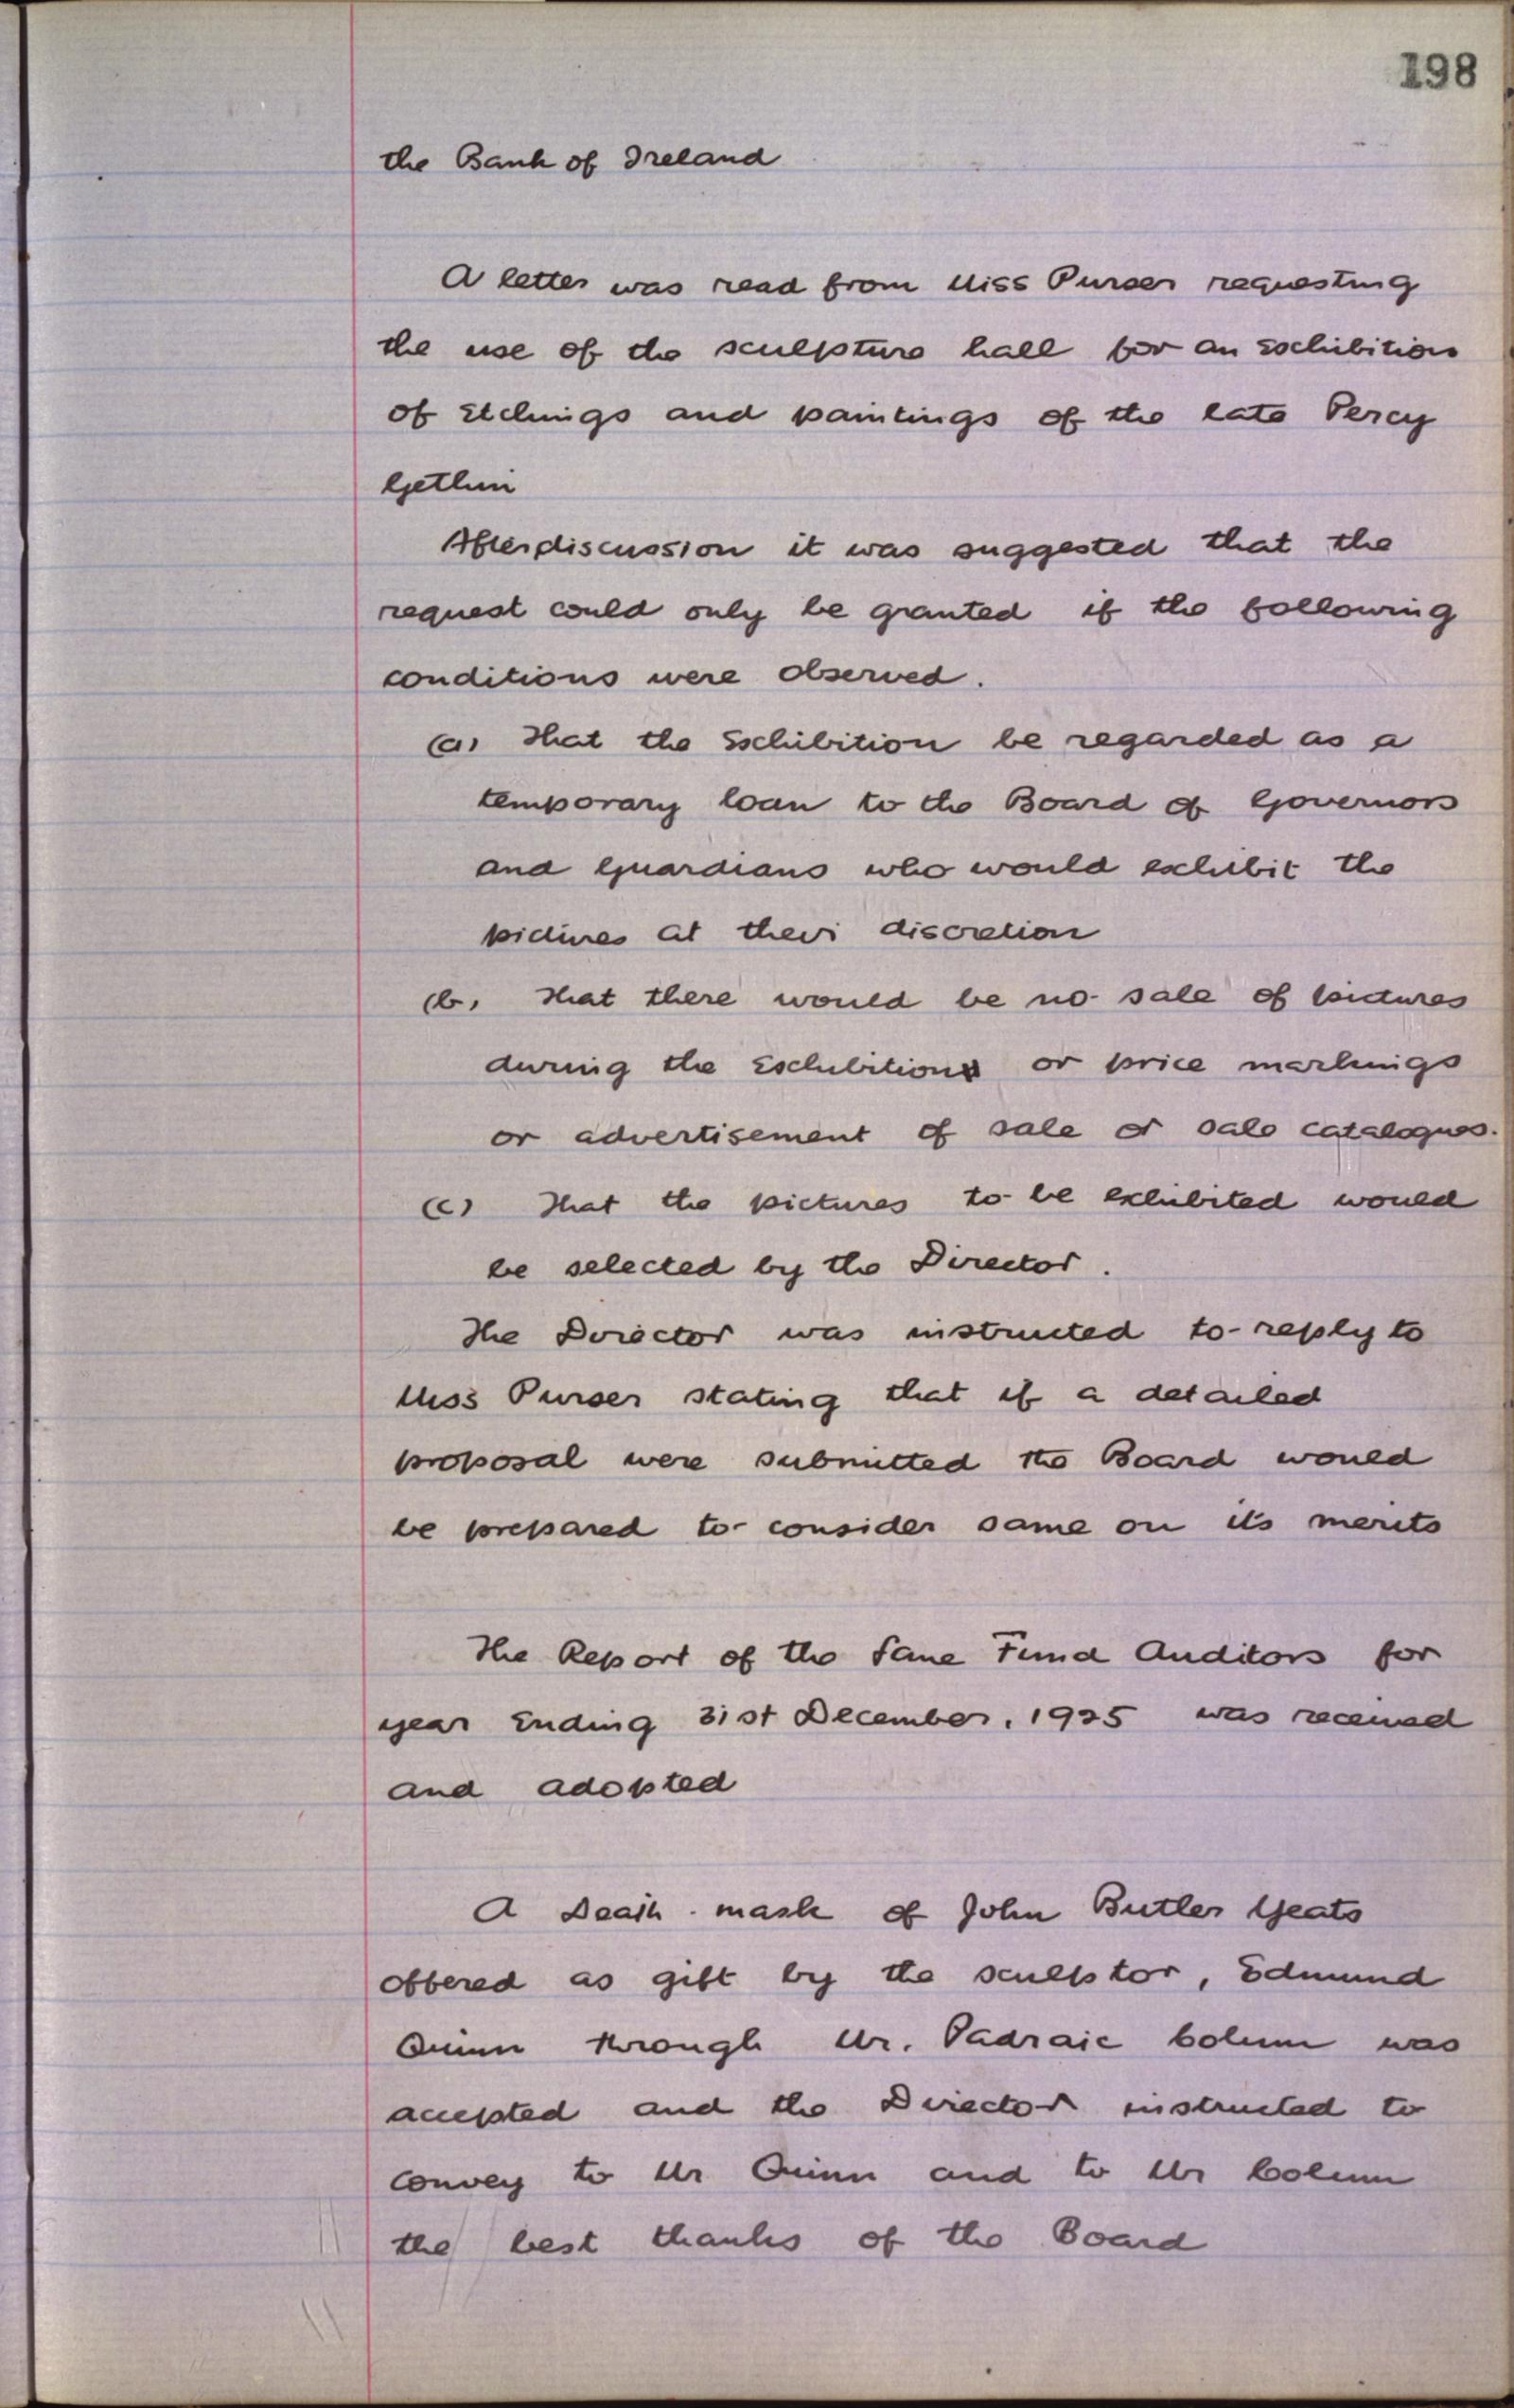 198
the Bank of Ireland
A letter was read from Miss Purser requesting
the use of the sculpture hall for an Exhibition
of Etchings and paintings of the late Percy
Gethin
After discussion it was suggested that the
request could only be granted if the following
conditions were observed.
(a) That the Exhibition be regarded as a
temporary loan to the Board of Governors
and Guardians who would exhibit the
pictures at their discretion
(b) That there would be no sale of pictures
during the Exhibition or price markings
or advertisement of sale or sale catalogues.
(c) That the pictures to be exhibited would
be selected by the Director.
The Director was instructed to reply to
Miss Purser stating that if a detailed
proposal were submitted the Board would
be prepared to consider same on its merits
The Report of the Lane Fund Auditors for
year Ending 31st December, 1925 was received
and adopted
A Death-mask of John Butler Yeats
offered as gift by the sculptor, Edmund
Quinn through Mr. Padraic Colum was
accepted and the Director instructed to
convey to Mr Quinn and to Mr Colum
the best thanks of the Board